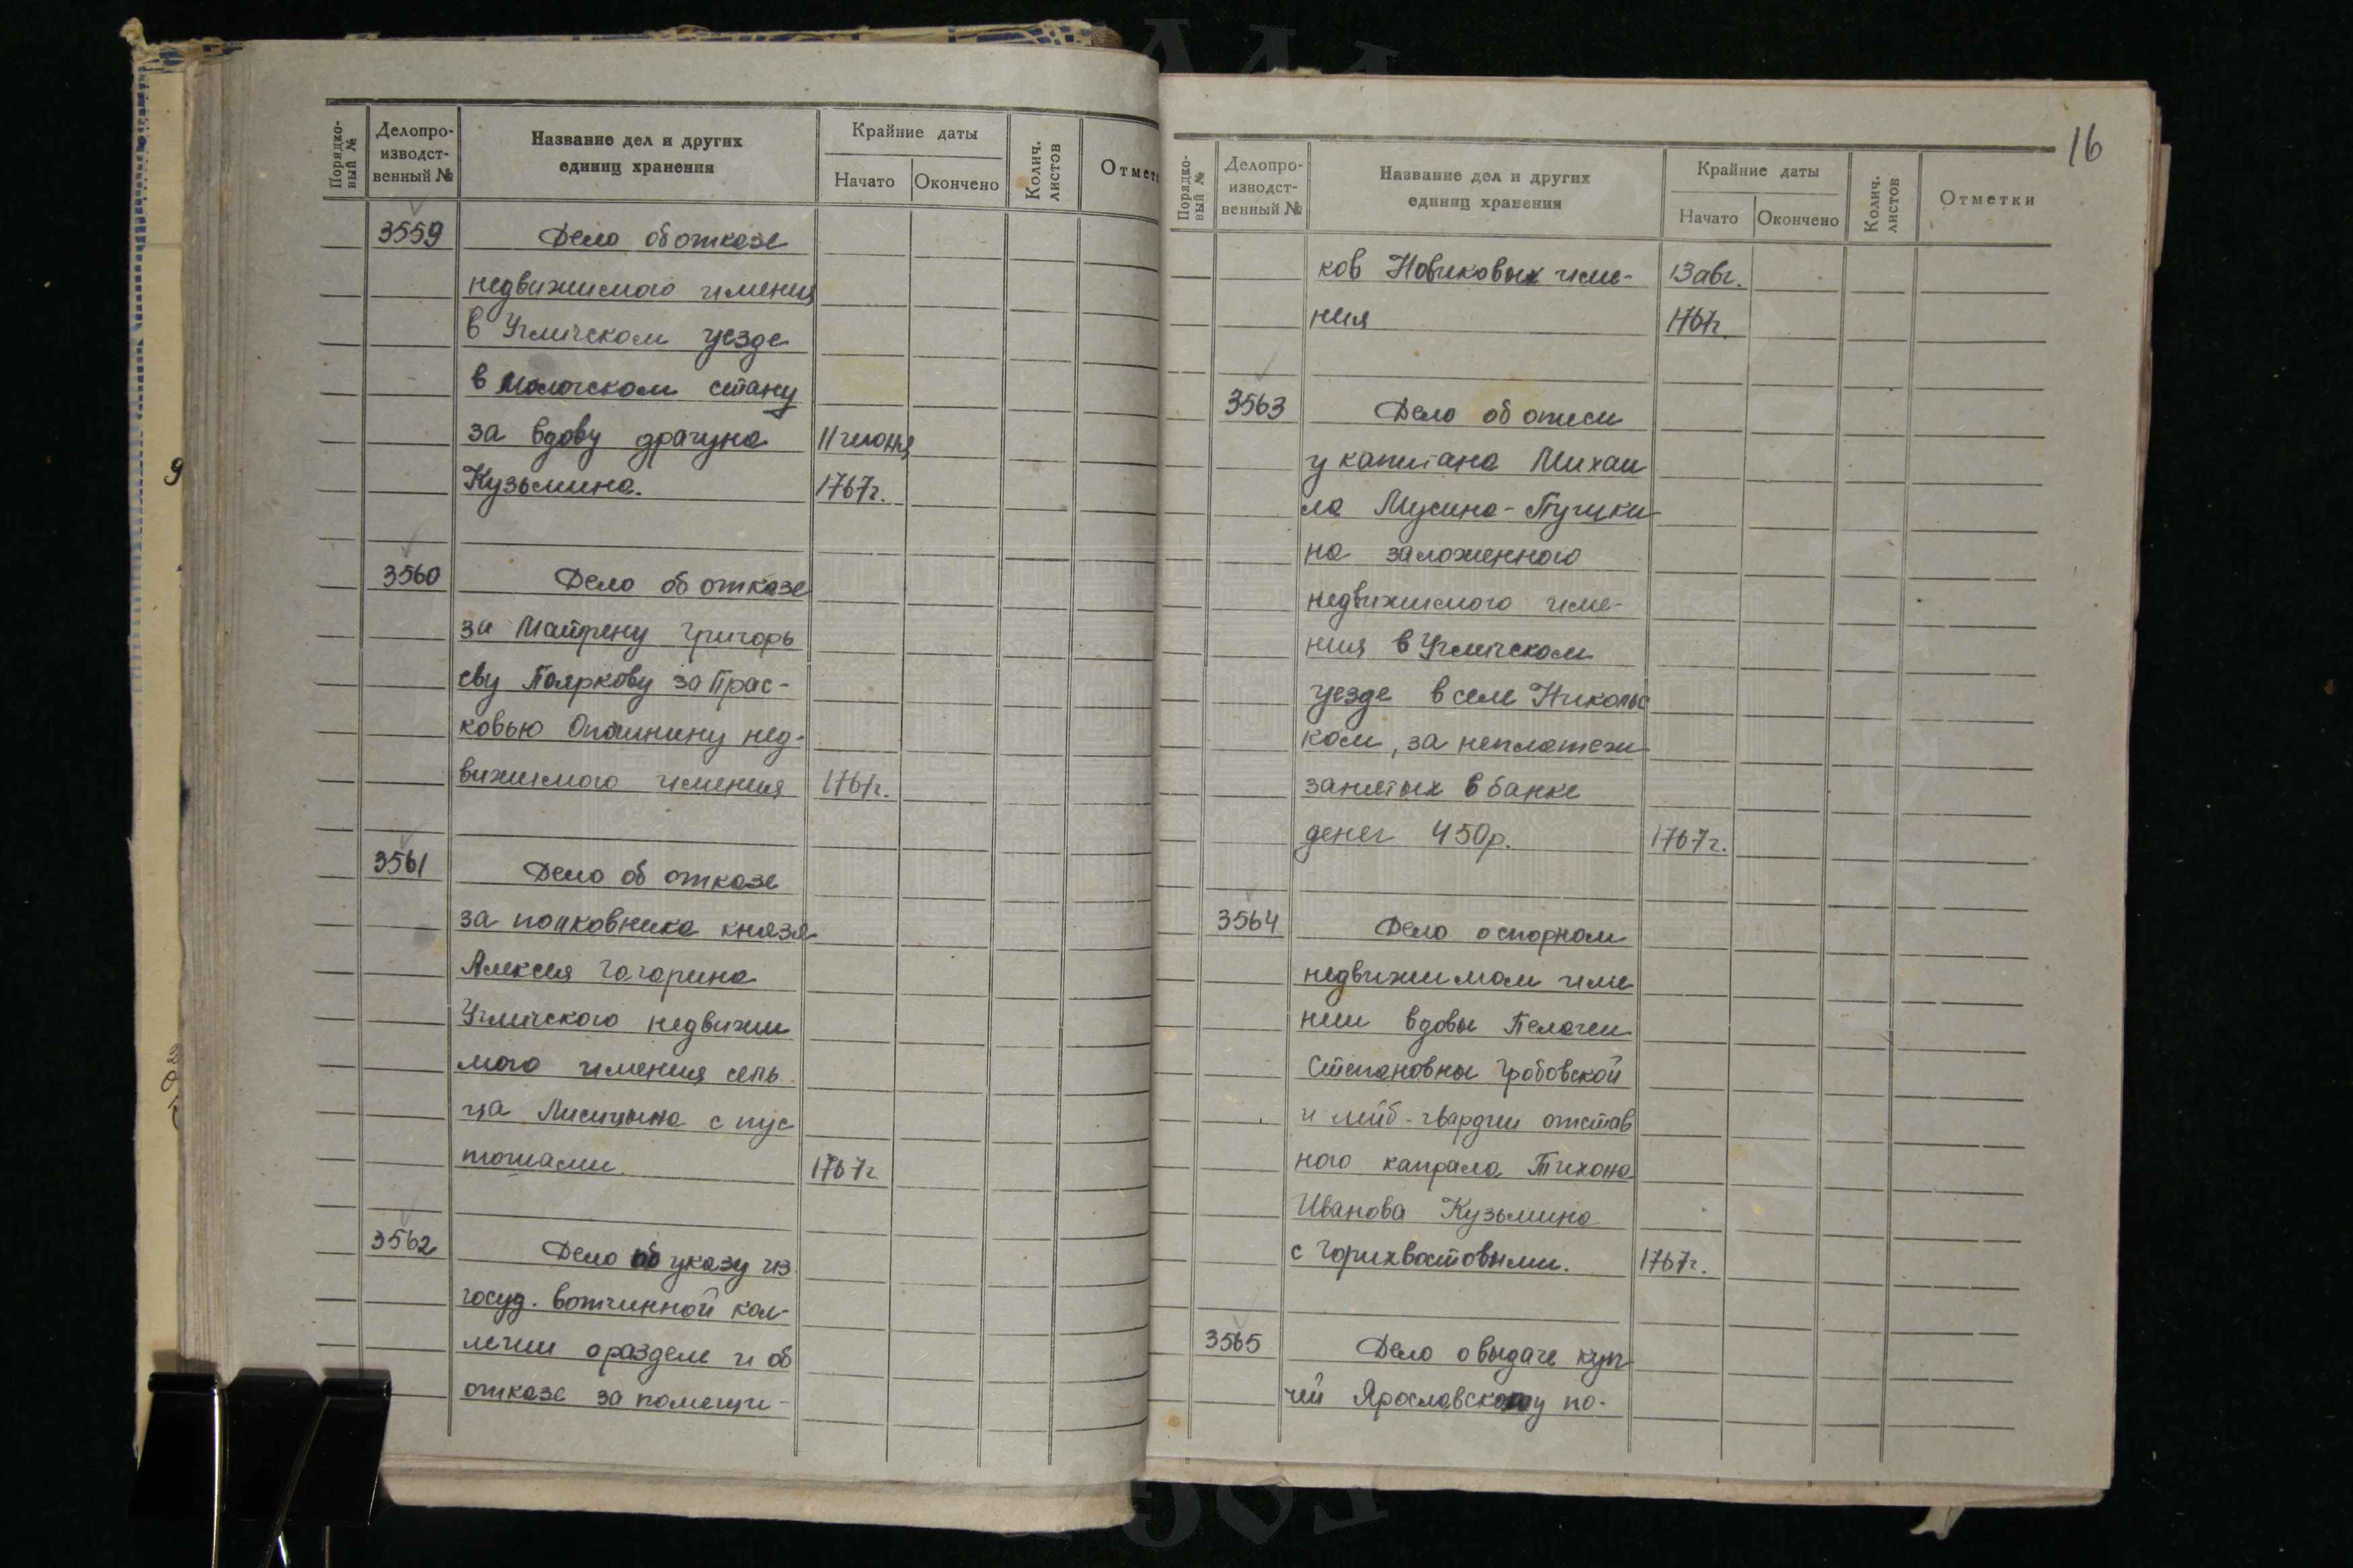 Порядко-
вый №
Делопро-
изводст-
венный №
Название дел и других
единиц хранения
Крайние даты
Начато Окончено
Колич.
листов
Отмет
3559 Дело об отказе
недвижимого имения
в Угличском уезде
в Молочском стану
за вдову драгуна 11 июня
Кузьмина. 1767г.
3560 Дело об отказе
за Матрену Григорь
еву Пояркову за Прас-
ковью Опочинину нед-
вижимого имения 1767г.
3561 Дело об отказе
за полковника князя
Алексея Гагарина
Угличского недвижи
мого имения сель
ца Лисицына с пус
тошами. 1767г.
3562 Дело об указу из
госуд. вотчинной кол-
легии о разделе и об
отказе за помещи-
16
Порядко-
вый №
Делопро-
изводст-
венный №
Название дел и других
единиц хранения
Крайние даты
Начато Окончено
Колич.
листов
Отметки
ков Новиковых име- 13 авг.
ния 1767г.
3563 Дело об описи
у капитана Михаи
ла Мусина-Пушки
на заложенного
недвижимого име-
ния в Угличском
уезде в селе Никольс
ком, за неплатежи
занятых в банке
денег 450р. 1767г.
3564 Дело о спорном
недвижимом име
нии вдовы Пелагеи
Степановны Гробовской
и лейб-гвардии отстав
ного капрала Тихона
Иванова Кузьмина
с Горихвостовыми. 1767г.
3565 Дело о выдаче куп
чей Ярославскому по-
9